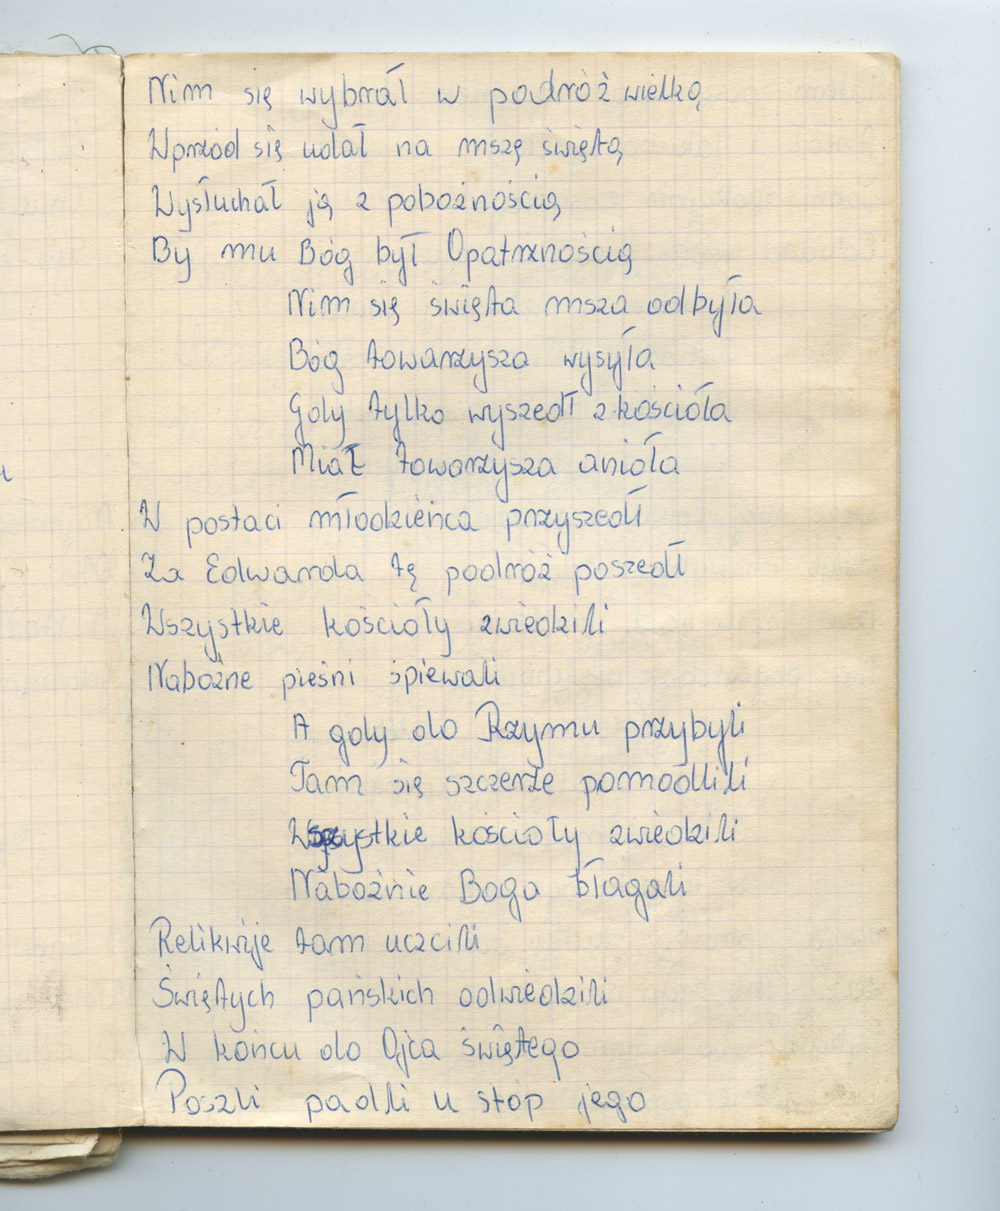 Nim się wybrał w podróż wielką
Wprzód się udał na mszę świętą
Wysłuchał ją z pobożnością
By mu Bóg był Opatrznością
Nim się święta msza odbyła
Bóg towarzysza wysyła
Gdy tylko wyszedł z kościoła
Miał towarzysza anioła
W postaci młodzieńca przyszedł
Za Edwarda tę podróż poszedł
Wszystkie kościoły zwiedzili
Nabożne pieśni śpiewali
A gdy do Rzymu przybyli
Tam się szczerze pomodlili
Wszystkie kościoły zwiedzili
Nabożnie Boga błagali
Relikwije tam uczcili
Świętych pańskich odwiedzili
W końcu do Ojca świętego
Poszli padli u stóp jego